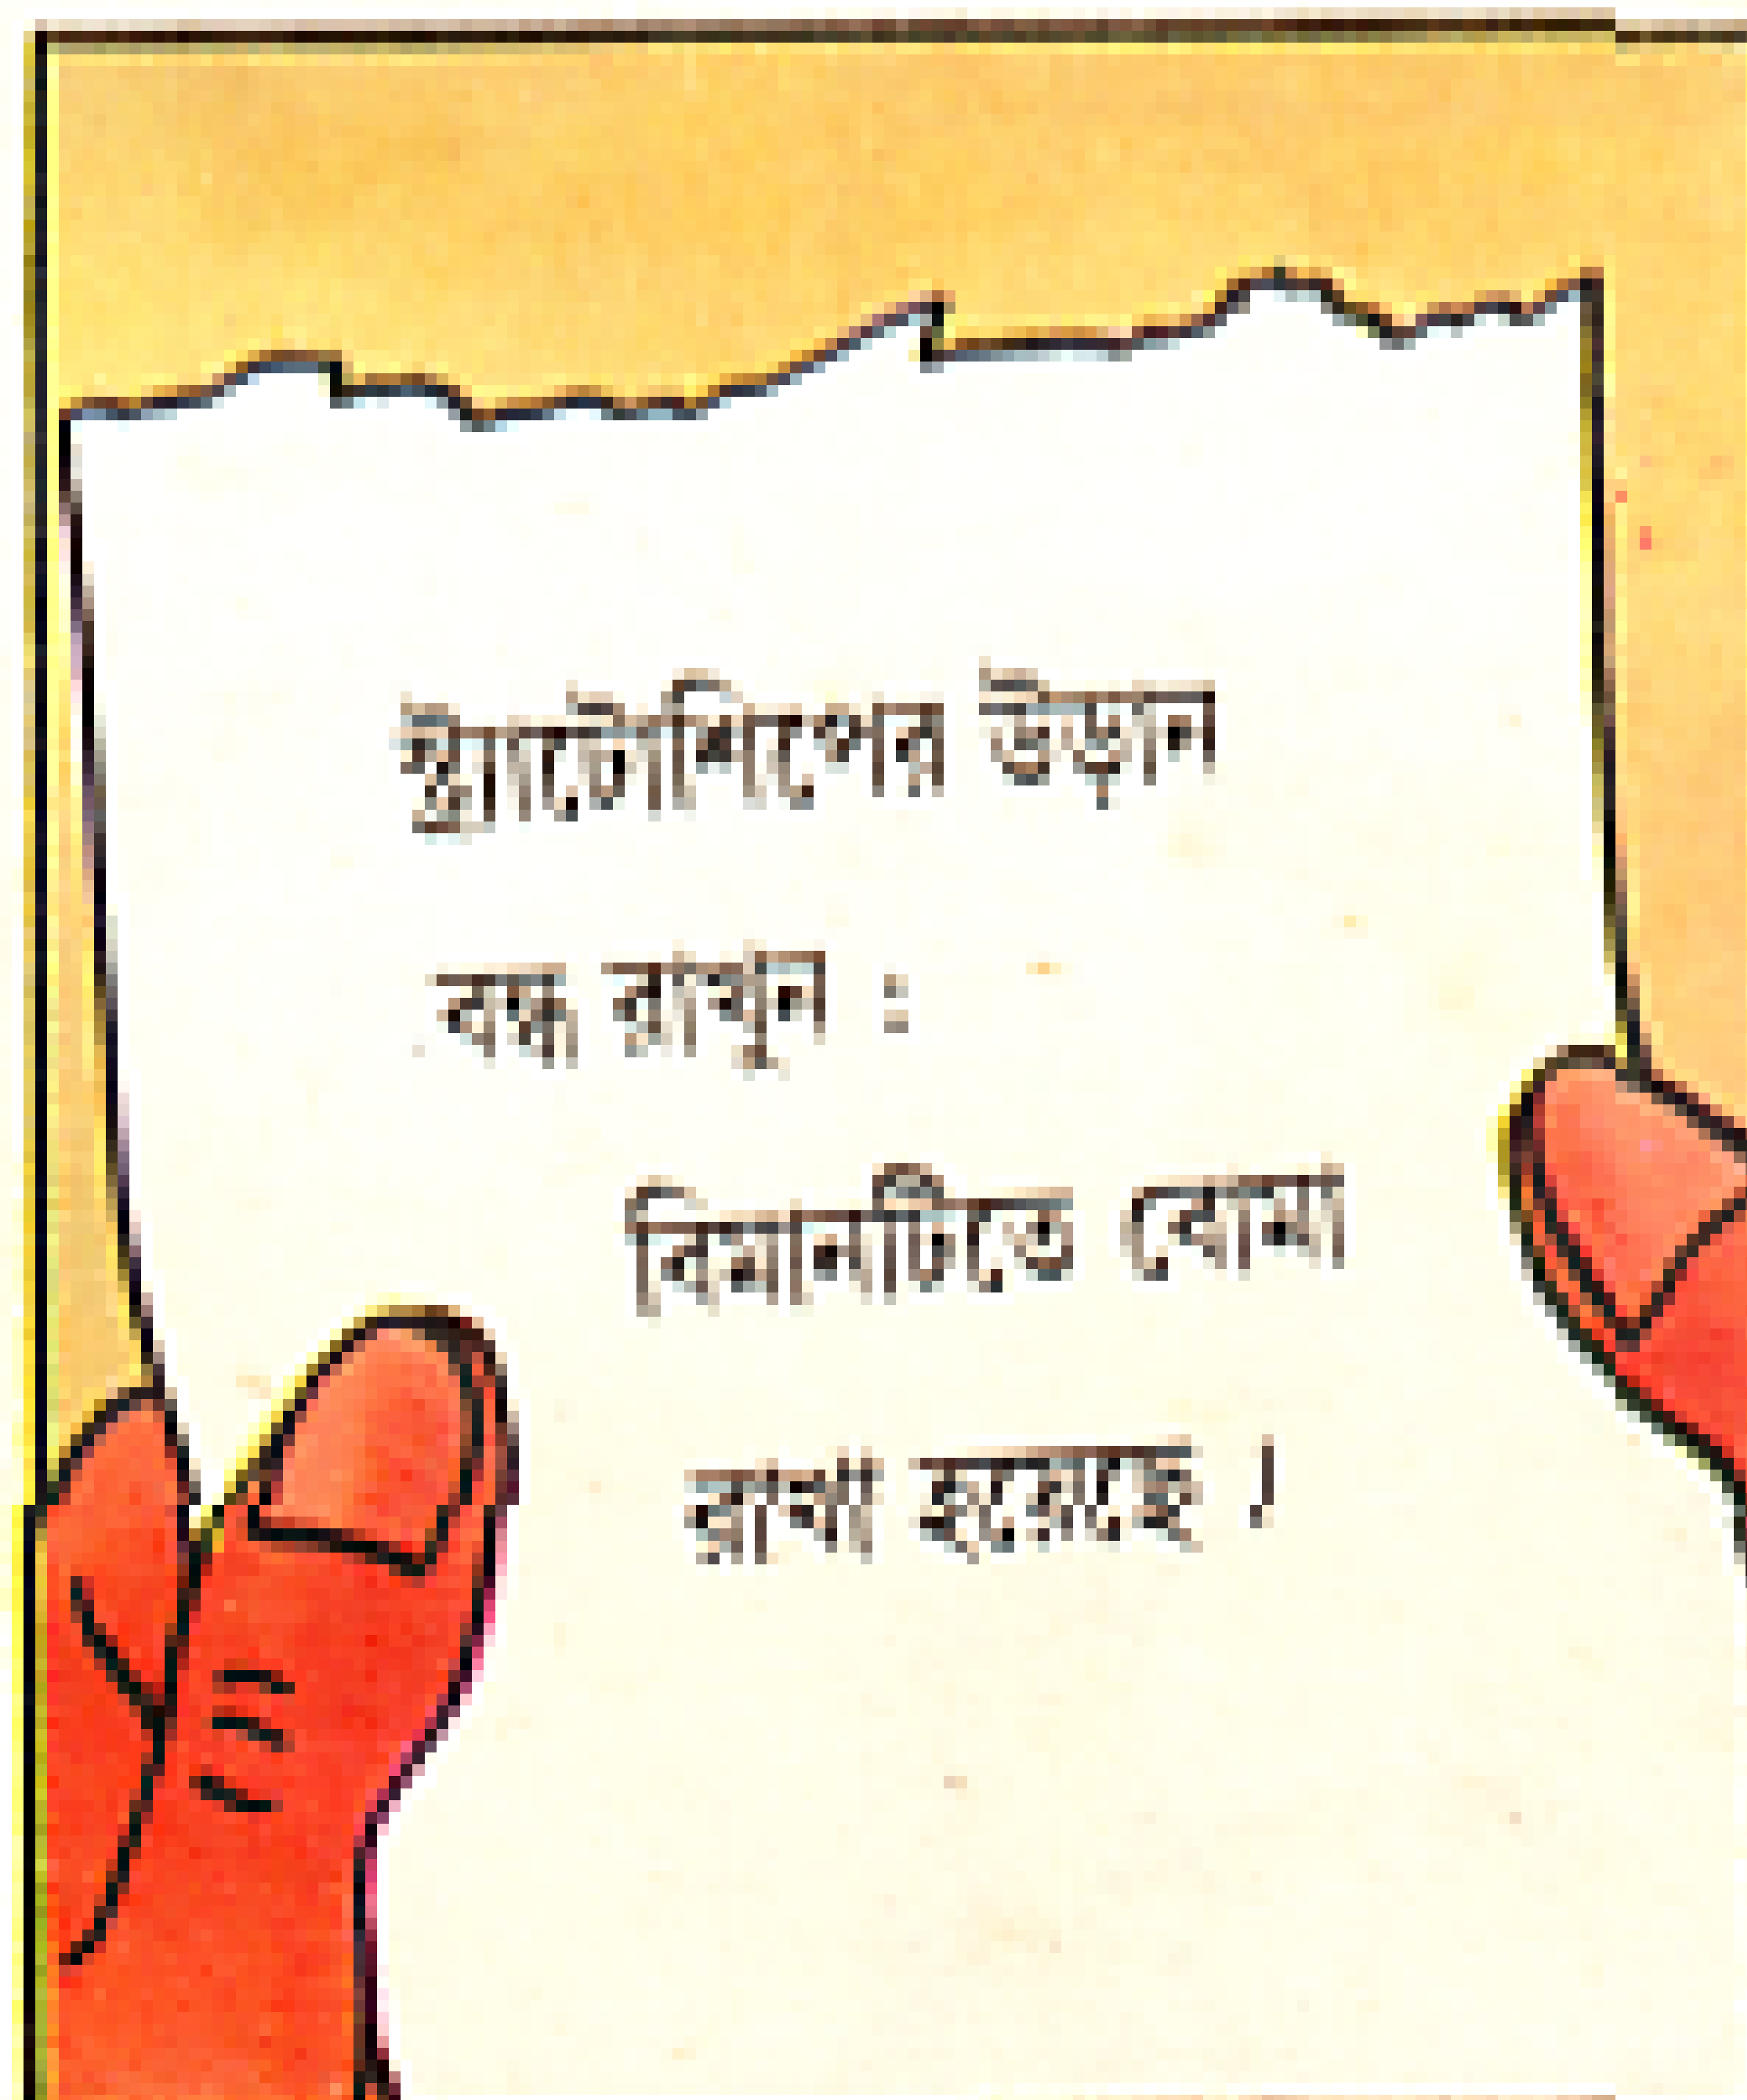 স্ট্রাটোশিপের উড়ান
বন্ধ রাখুন :
বিমানটিতে বোমা
রাখা হয়েছে ।